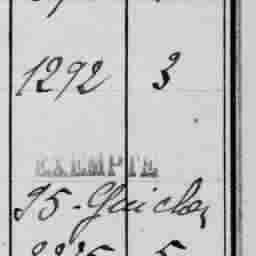 1292 3
EXEMPTE
95-Guichen